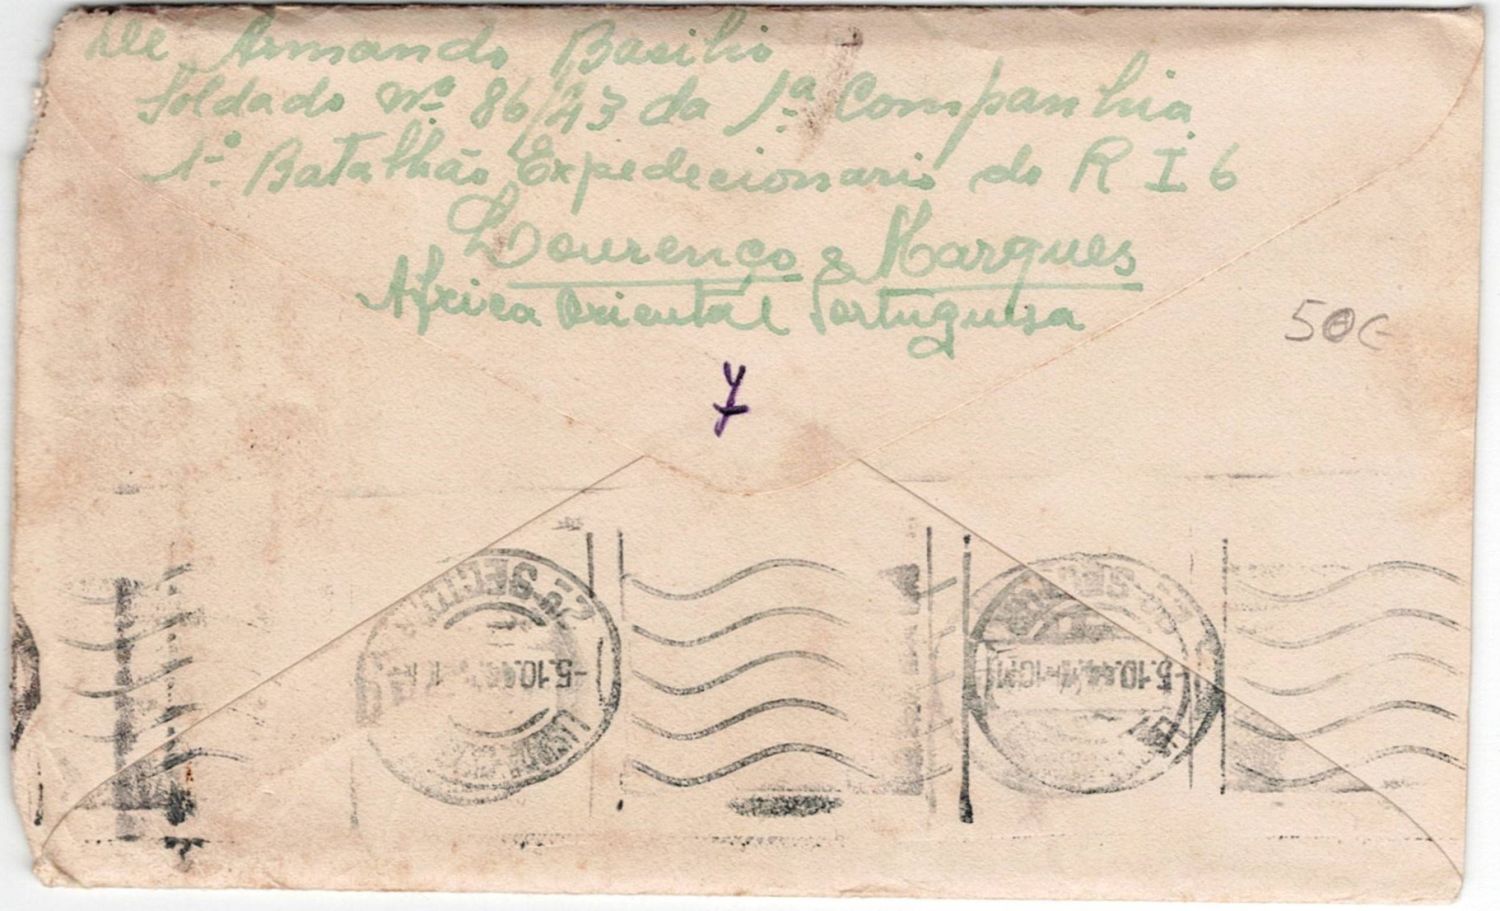 De Armando Basilio
Soldado nº 86/43 da 1ª Companhia
1º Batalhão Expedecionario do R I 6
Lourenço Marques
Africa Oriental Portuguesa
50
-5.10.44
2ª SECÇÃO
-5.10.44